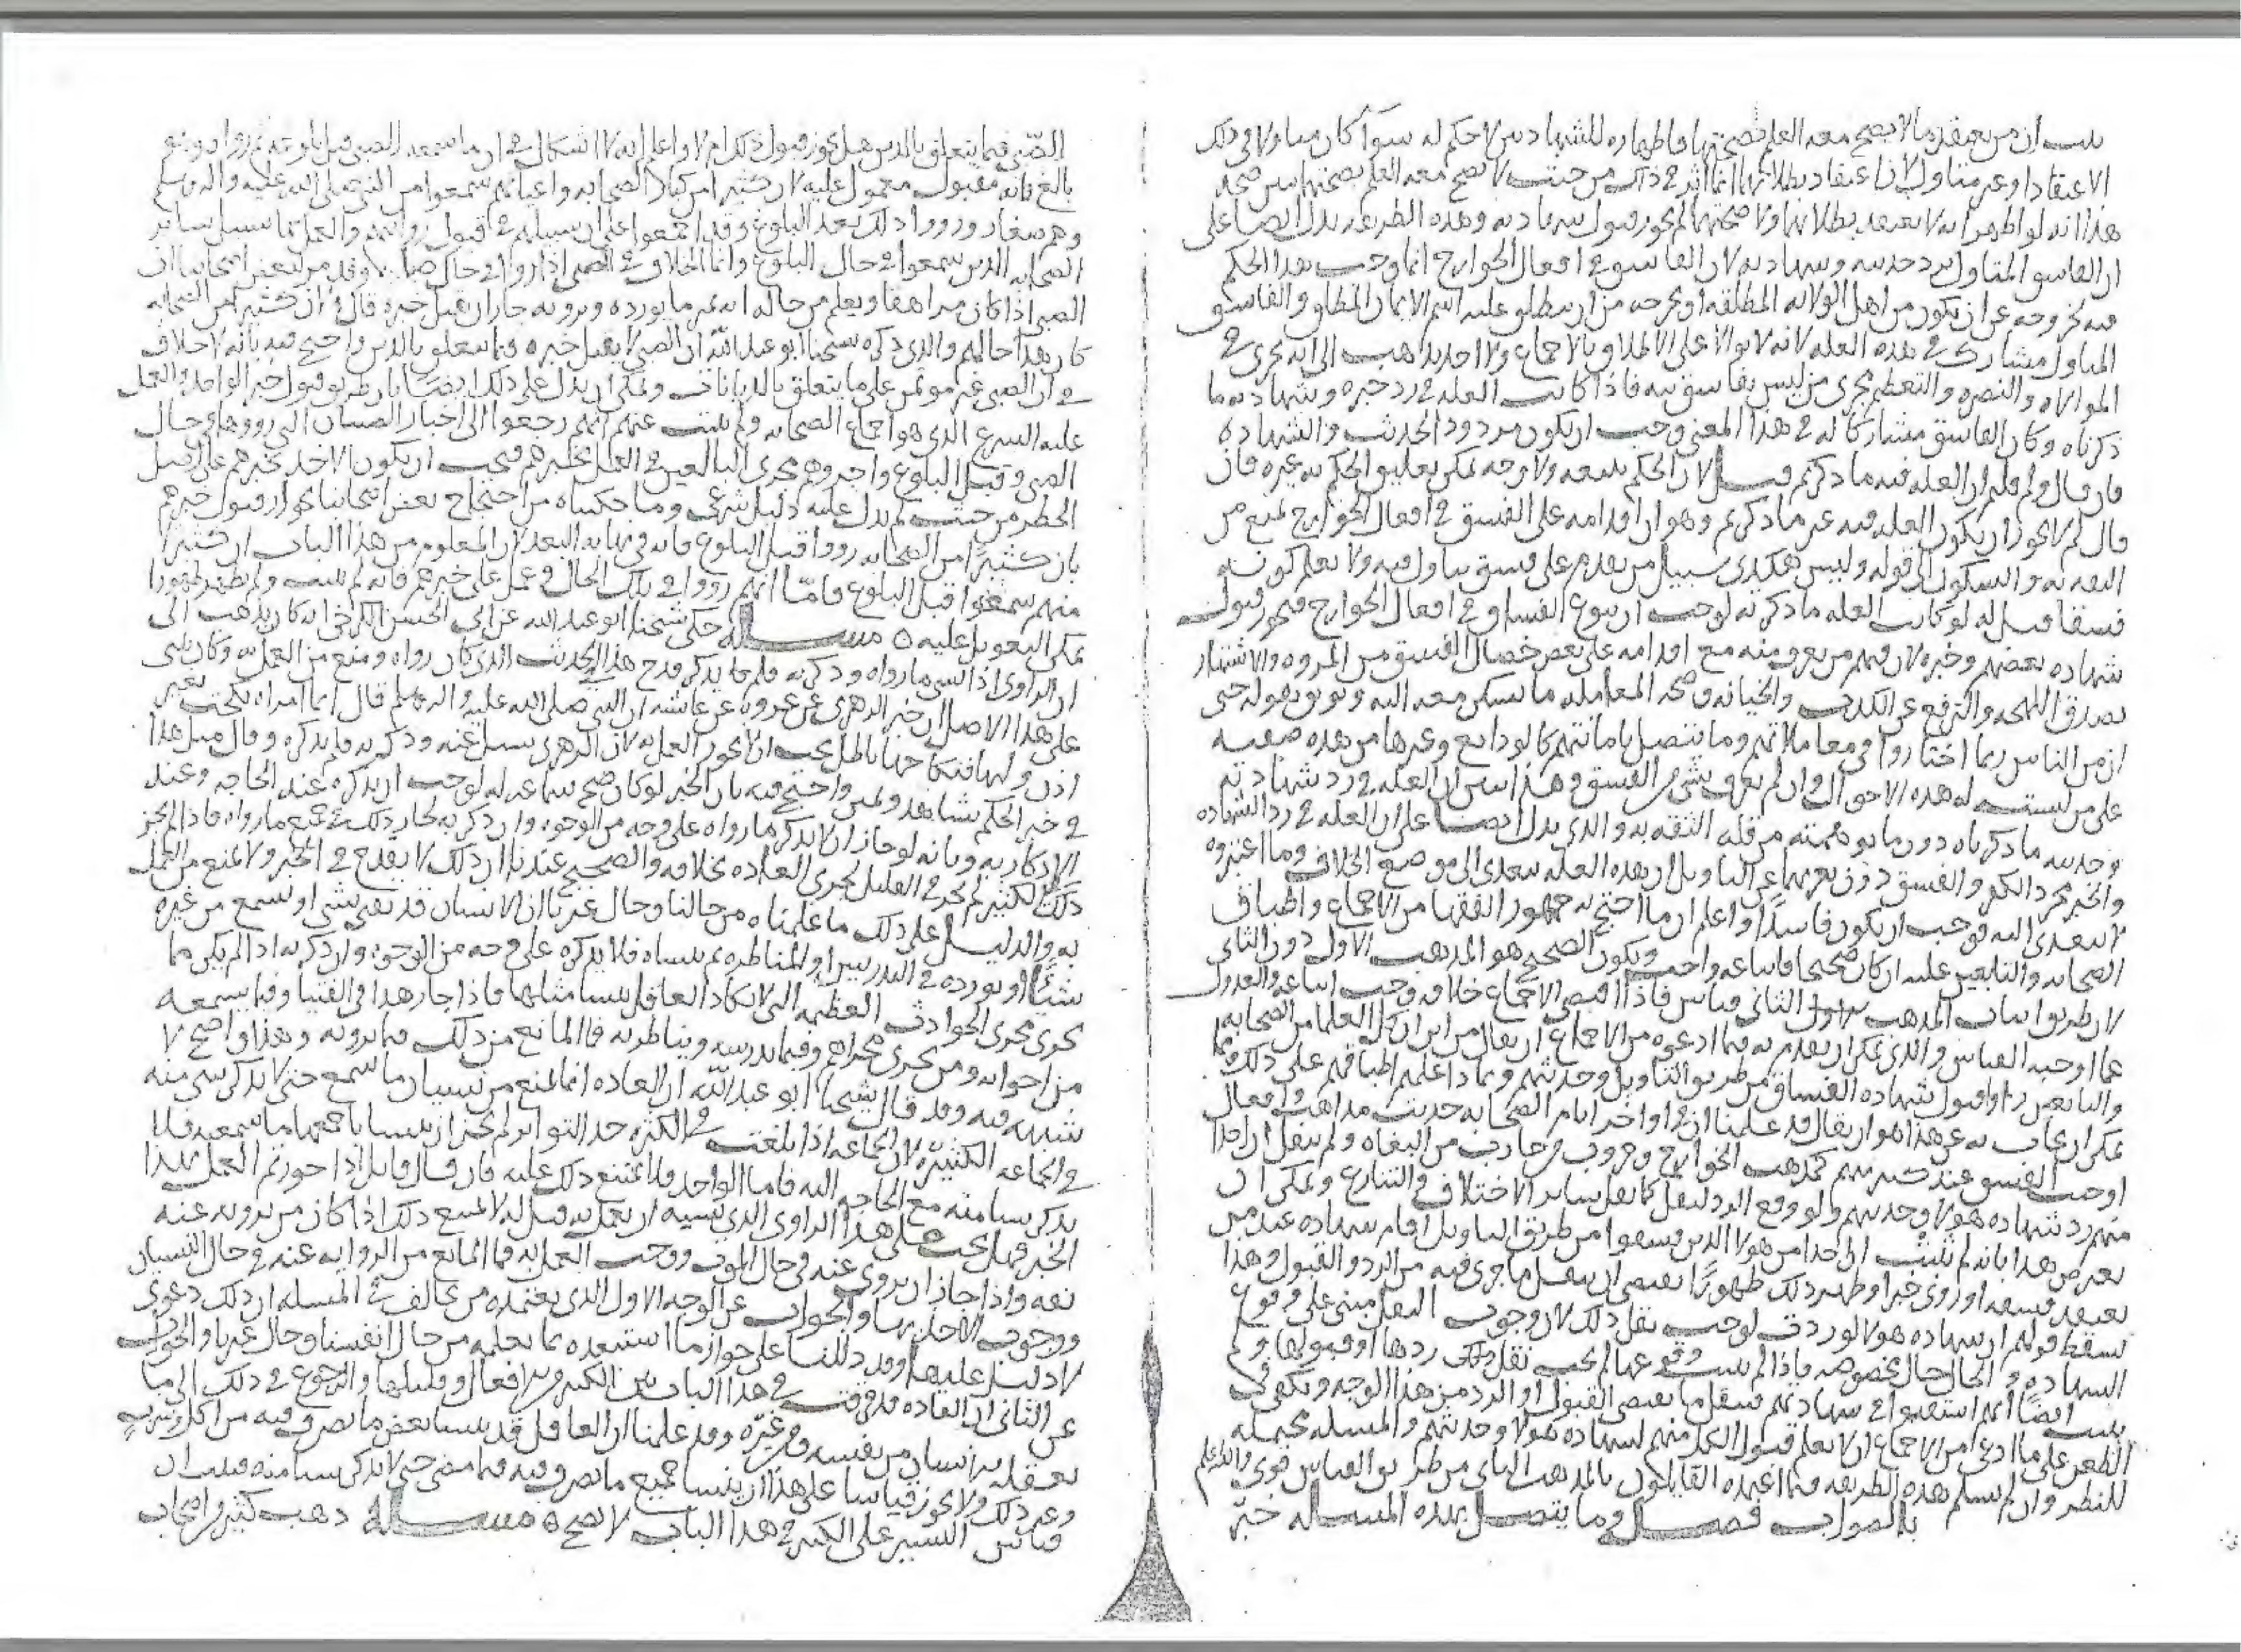 ثبت ان من يعتقد ما لا يصح معه العلم بصحتها فاظهاره للشهادتين لا حكم له سوآ كان متاولا في ذلك
الاعتقاد او غير متاول لان اعتقاد بطلانهما انما اثر في ذلك من حيث لا يصح معه العلم بصحتهما يبين صحة
هذا انه لو اظهر انه لا يعتقد بطلانها ولا صحتها لم يجز قبول شهادته وهذه الطريقة تدل ايضا على
ان الفاسق المتاول يرد حديثه وشهادته لان الفاسق في افعال الجوارح انما وجب هذا الحكم
فيه لخروجه عن ان يكون من اهل الولاية المطلقة او لخروجه من ان يطلق عليه اسم الايمان المطلق والفاسق
المتاول مشارك في هذه العلة لانه لا يوالا على الاطلاق بالاجماع ولا احد يذهب الى انه يجري في
الموالاه والنصره والتعظيم مجرى من ليس بفاسق فاذا كانت العلة في رد خبره وشهادته ما
ذكرناه وكان الفاسق مشاركا له في هذا المعنى وجب ان يكون مردود الحديث والشهاده
فان قال ولم قلتم ان العلة فيه ما ذكرتم قيل لان الحكم يتبعه ولا وجه يمكن تعليق الحكم به غيره فان
قال لم لا يجوز ان يكون العلة فيه غير ما ذكرتم وهو ان اقدامه على الفسق في افعال الجوارح يمنع من
الثقه به والسكون الى قوله وليس هكذى سبيل من يقدم على فسق يتاول فيه ولا يعلم كونه
فسقا قيل له لو كانت العلة ما ذكرته لوجب ان يتنوع الفساق في افعال الجوارح فيجوز قبول
شهاده بعضهم وخبره لان فيهم من يعرف منه مع اقدامه على بعض خصال الفسق من المروه والاشتهار
بصدق اللهجه والترفع عن الكذب والخيانه وصحة المعامله ما يسكن معه اليه ويوثق بقوله حتى
ان من الناس ربما اختاروا في معاملاتهم وما يتصل باماناتهم كالودايع وغيرها من هذه صفته
على من ليست له هذه الاحوال وان لم يعرف بشيء من الفسق وهذا يبين ان العلة في رد شهادته
وحديثه ما ذكرناه دون ما توهمته من قلة الثقه به والذي يدل ايضا على ان العلة في رد الشهاده
والخبر مجرد الكفر والفسق دون تعريهما عن التاويل ان هذه العلة تتعدى الى موضع الخلاف وما اعتبروه
لا يتعدى اليه فوجب ان يكون فاسدا واعلم ان ما احتج به جمهور الفقها من الاجماع واطباق
الصحابه والتابعين عليه ان كان صحيحا فاتباعه واجب ويكون الصحيح هو المذهب الاول دون الثاني
لان طريق اثبات المذهب الثاني قياس فاذا اقتضى الاجماع خلافه وجب اتباعه والعدول
عما اوجبه القياس والذي يمكن ان يقدح به فيما ادعوه من الاجماع ان يقال من اين ان كل العلما من الصحابه
والتابعين راوا قبول شهاده الفساق من طريق التاويل وحديثهم وبماذا علمتم اطباقهم على ذلك فما
يمكن ان يجاب به عن هذا هو ان يقال قد علمنا ان في اواخر ايام الصحابه حدثت مذاهب وافعال
اوجبت الفسق عند كثير منهم كمذهب الخوارج وحروب من حارب من البغاه ولم ينقل ان احدا
منهم رد شهاده هولا وحديثهم ولو وقع الرد لنقل كما نقل ساير الاختلاف والتنازع ويمكن ان
يعترض هذا بانه لم يثبت ان احدا من هولا الذين فسقوا من طريق التاويل اقام شهاده عند من
يعتقد فسقه او روى خبرا وظهر ذلك ظهورًا يقتضي ان ينقل ما جرى فيه من الرد والقبول وهذا
يسقط قولهم ان شهاده هولا لو ردت لوجب نقل ذلك لان وجوب النقل مبني على وقوع
الشهاده في الحال حال مخصوصه فاذا لم يثبت وقوعها لم يجب نقل ردها او قبولها ولم
يثبت ايضا انهم استقصوا في شهادتهم فينقل ما يقتضي القبول او الرد من هذا الوجه ويكفي في
الطعن على ما ادعى من الاجماع ان لا يعلم قبول الكل منهم لشهاده هولا وحديثهم والمسله محتمله
للنظر وان لم يسلم هذه الطريقه فما اعتمده القايلون بالمذهب الثاني من طريق القياس قوي والله اعلم
بالصواب فصل وما يتصل بهذه المسله خبر
الصبي فيما يتعلق بالدين هل يجوز قبول ذلك ام لا واعلم انه لا اشكال في ان ما سمعه الصبي قبل بلوغه ثم رواه وهو
بالغ فانه مقبول معمول عليه لان كثيرا من كبار الصحابه واعيانهم سمعوا من النبي صلى الله عليه واله وسلم
وهم صغار ورووا ذلك بعد البلوغ وقد اجمعوا على ان سبيلهم في قبول روايتهم والعمل بها سبيل ساير
الصحابه الذين سمعوا في حال البلوغ وانما الخلاف في الصبي اذا روى في حال صباه وقد مر لبعض اصحابنا ان
الصبي اذا كان مراهقا ويعلم من حاله انه يميز ما يورده ويرويه جاز ان يقبل خبره قال لان كثيرا من الصحابه
كان هذا حالهم والذي ذكره شيخنا ابو عبد الله ان الصبي لا يقبل خبره فيما يتعلق بالدين واحتج فيه بانه لا خلاف
في ان الصبي غير موتمن على ما يتعلق بالديانات ويمكن ان يدل على ذلك ايضا بان طريق قبول خبر الواحد والعمل
عليه السرع الذي هو اجماع الصحابه ولم يثبت عنهم انهم رجعوا الى اخبار الصبيان التي رووها في حال
الصبى وقبل البلوغ واجروهم مجرى البالغين في العمل بخبرهم فيجب ان يكون الاخذ بخبرهم على اصل
الحظر من حيث لم يدل عليه دليل شرعي وما حكيناه من احتجاج بعض اصحابنا في ان قبول خبرهم
بان كثيرًا من الصحابه رووا قبل البلوغ فانه في نهايه البعد لان المعلوم من هذا الباب ان كثيرا
منهم سمعوا قبل البلوغ فامّا انهم رووا في تلك الحال وعمل على خبرهم فانه لم يثبت ولم يظهر ظهورا
يمكن التعويل عليه ه مسله حكى شيخنا ابو عبد الله عن ابي الحسن الكرخي انه كان يذهب الى
ان الراوي اذا نسي ما رواه وذكر به فلم يتذكر قدح هذا في الحديث الذي كان رواه ومنع من العمل به وكان يبني
على هذا الاصل ان خبر الزهري عن عروه عن عايشه ان النبي صلى الله عليه واله وسلم قال ايما امراه نكحت بغير
اذن وليها فنكاحها باطل يجب ان لا يجوز العمل به لان الزهري سيل عنه وذكر به فلم يذكره وقال مثل هذا
في خبر الحكم بشاهد ويمين واحتج فيه بان الخبر لو كان صح سماعه له لوجب ان يذكره عند الحاجه وعند
الاذكار به وبانه لو جاز ان لا يذكر ما رواه على وجه من الوجوه وان ذكر به لجاز ذلك في جميع ما رواه فاذا لم يجز
ذلك في الكثير لم يجز في القليل لجرى العاده بخلافه والصحيح عندنا ان ذلك لا يقدح في الخبر ولا يمنع من العمل
به والدليل على ذلك ما علمناه من حالنا وحال غيرنا ان الانسان قد يفتي بشي او يسمع من غيره
شيئًا او يورده في التدريس او المناظره ثم ينساه فلا يذكره على وجه من الوجوه وان ذكر به اذا لم يكن مما
يجري مجرى الحوادث العظيمه التي لا يكاد العاقل ينسا مثلها فاذا جاز هذا في الفتيا وفيما يسمعه
من اخوانه ومن يجري مجراهم وفيما يدرسه ويناظر به فما المانع من ذلك فيما يرويه وهذا واضح لا
شبهه فيه وقد قال شيخنا ابو عبد الله ان العاده انما تمنع من نسيان ما سمع حتى لا يذكر شي منه
في الجماعه الكثيره لان الجماعه اذا بلغت في الكثره حد التواتر لم يجز ان ينسا باجمعها ما سمعته فلا
يذكر شيا منه مع الحاجه اليه فاما الواحد فلا يمتنع ذلك عليه فان قال قايل اذا جوزتم العمل بهذا
الخبر فهل يجب على هذا الراوي الذي نسيه ان يعمل به قيل له لا يمتنع ذلك اذا كان من يرويه عنه
ثقه واذا جاز ان يروى عنه في حال الموت ووجب العمل به فما المانع من الروايه عنه في حال النسيان
ووجوب الاخذ بها والجواب عن الوجه الاول الذي يعتمده من يخالف في المسله ان ذلك دعوى
لا دليل عليها وقد دللنا على جواز ما استبعده بما نعلمه من حال انفسنا وحال غيرنا والجواب
عن الثاني ان العاده قد فرقت في هذا الباب بين الكثير من الافعال وقليلها والرجوع في ذلك الى ما
يعقله الانسان من نفسه ومن غيره وقد علمنا ان العاقل قد ينسا بعض ما تصرف فيه من اكل وشرب
وغير ذلك ولا يجوز قياسا على هذا ان ينسا جميع ما تصرف فيه فيما مضى حتى لا يذكر شيا منه فثبت ان
قياس اليسير على الكثير في هذا الباب لا يصح ه مسله ذهب كثير من اصحاب